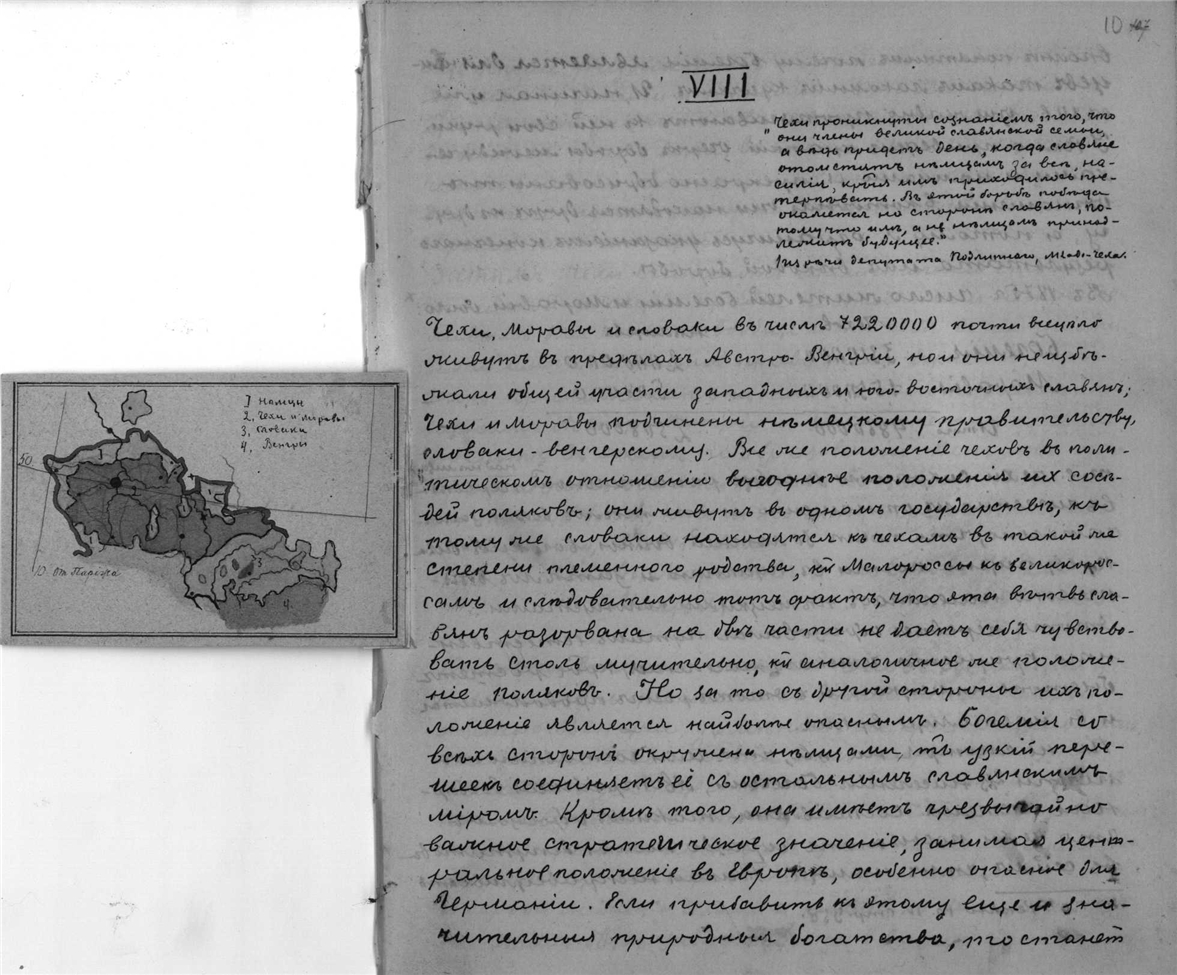 10
VIII
"Чехи проникнуты сознаніемъ того, что
они члены великой славянской семьи,
а вѣдь придетъ день, когда славяне
отомстятъ нѣмцамъ за всѣ на-
силія, крыя имъ приходилось пре-
терпѣвать. Въ этой борьбѣ побѣда
окажется на сторонѣ славянъ, по-
тому что имъ, а не нѣмцамъ принад-
лежитъ будущее."
Изъ рѣчи депутата Подлипнаго, младо-чеха.
Чехи, моравы и словаки въ числѣ 7220000 почти всецѣло
живутъ въ предѣлахъ Австро-Венгріи, но и они не избѣ-
жали общей участи западныхъ и юго-восточныхъ славянъ;
Чехи и моравы подчинены нѣмецкому правительству,
словаки - венгерскому. Все же положеніе чеховъ въ поли-
тическомъ отношеніи выгоднѣе положенія их сосѣ-
дей поляковъ; они живутъ въ одномъ государствѣ, къ
тому же словаки находятся къ чехамъ въ такой же
степени племенного родства, кй Малороссы къ великорос-
самъ и слѣдовательно тотъ фактъ, что эта вѣтвь сла-
вянъ разорвана на двѣ части не даетъ себя чувство-
вать столь мучительно, кй аналогичное же положе-
ніе поляковъ. Но за то съ другой стороны ихъ по-
ложеніе является наиболѣе опаснымъ. Богемія со
всѣхъ сторонъ окружена нѣмцами, узкій пере-
шеекъ соединяетъ её съ остальнымъ славянскимъ
міромъ. Кромѣ того, она имѣетъ чрезвычайно
важное стратегическое значеніе, занимая цент-
ральное положеніе въ Европѣ, особенно опасное для
Германіи. Если прибавить къ этому еще и зна-
чительныя природныя богатства, то станетъ
1 Немцы
2, Чехи и Моравы
3, Словаки
4, Венгры
50
10 От Парижа
3
4